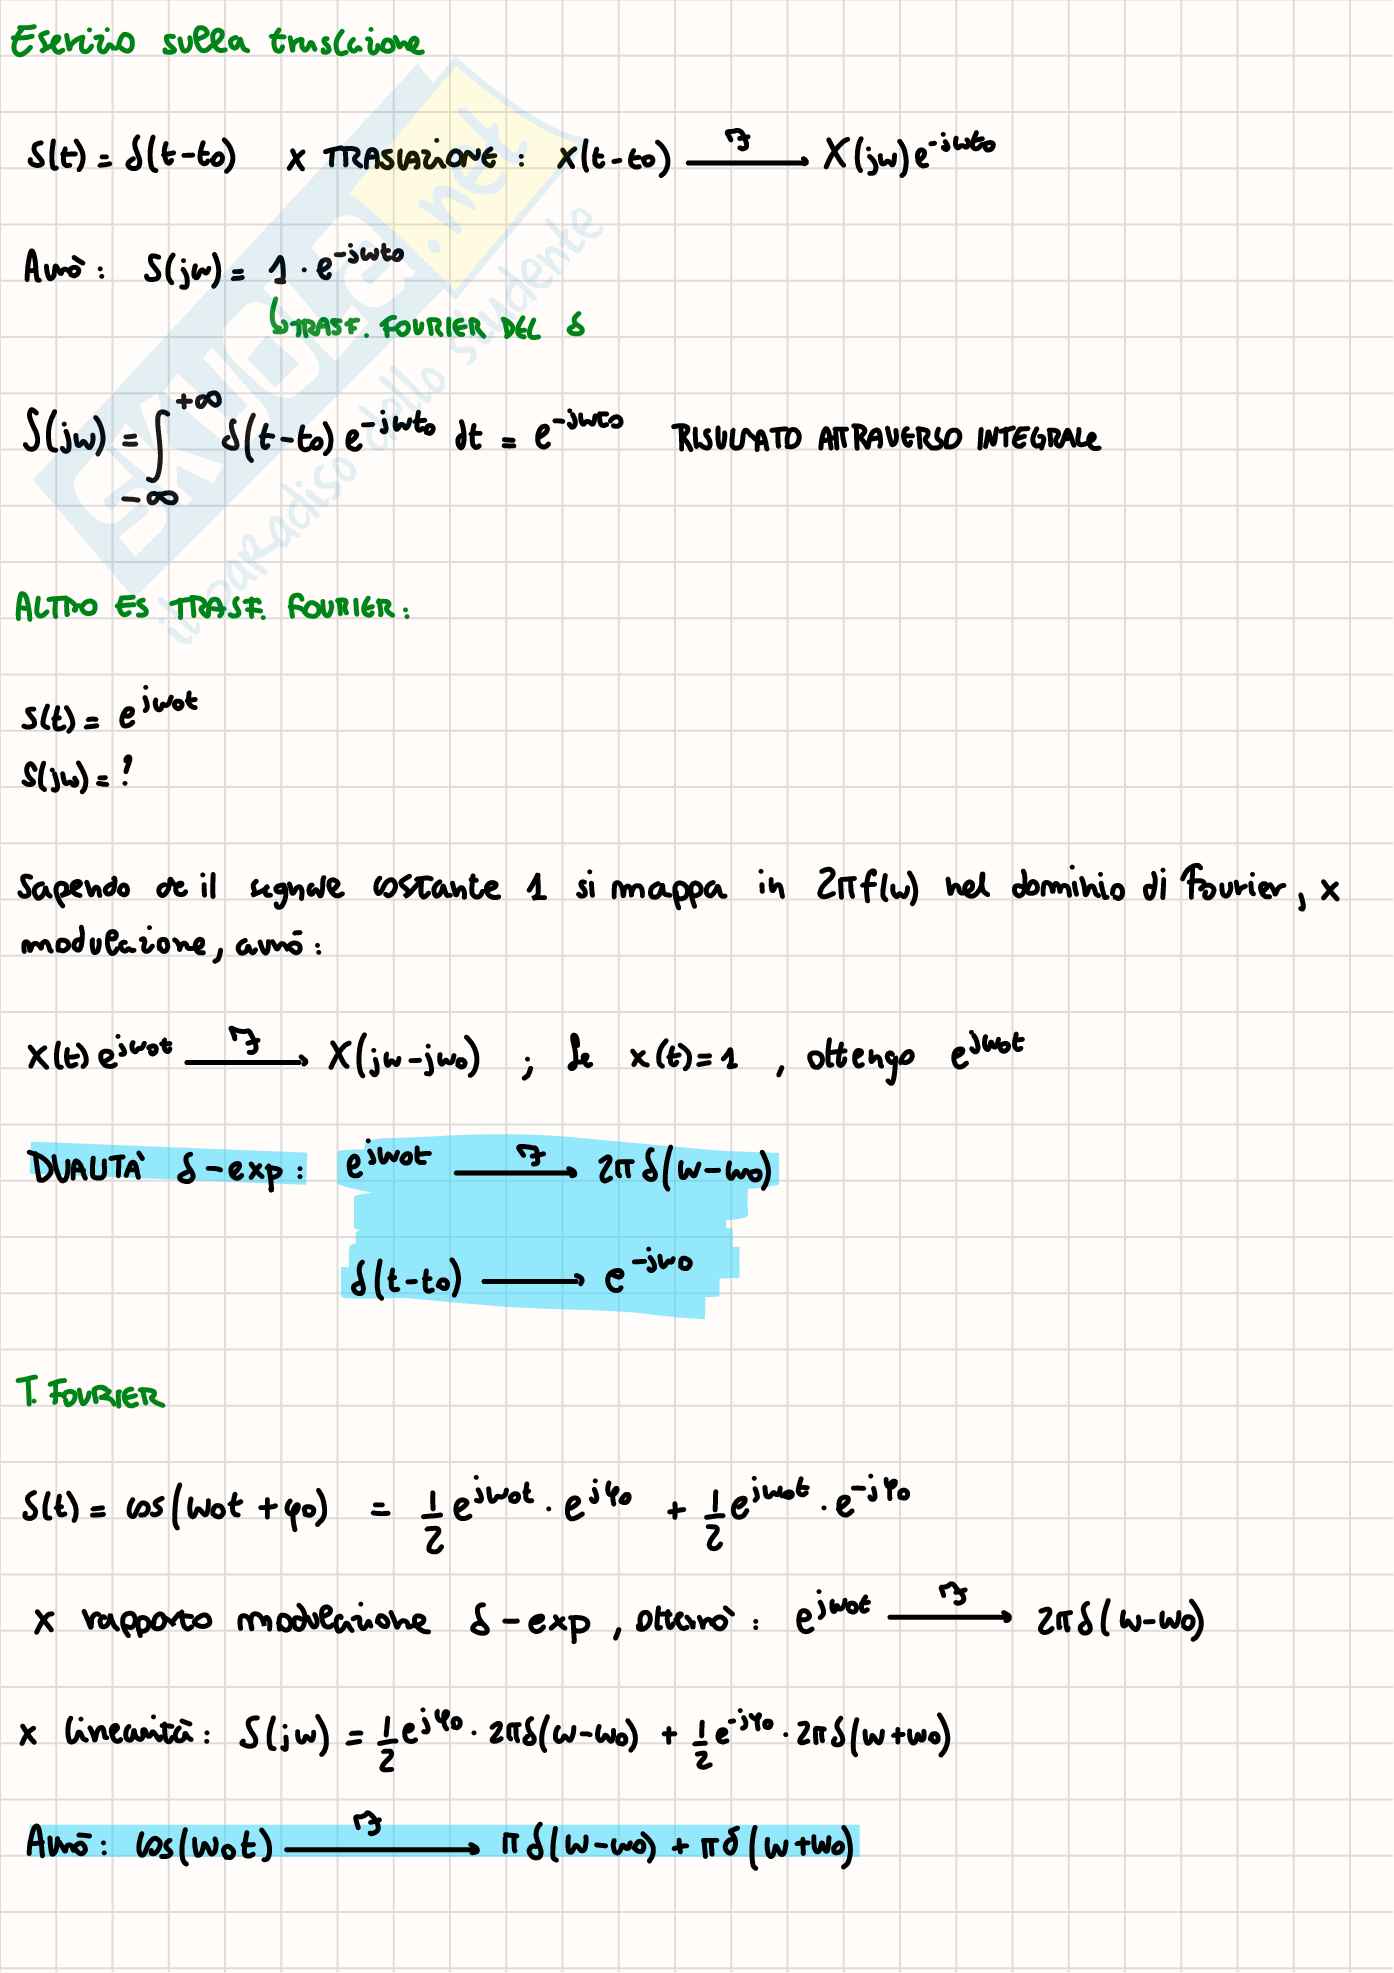 Esercizio sulla traslazione
S(t) = δ(t-t₀) x TRASLAZIONE: x(t-t₀) —ℱ→ X(jω)e^(-jωt₀)
Avrò: S(jω) = 1 · e^(-jωt₀)
↳ TRASF. FOURIER DEL δ
S(jω) = ∫_(-∞)^(+∞) δ(t-t₀) e^(-jωt₀) dt = e^(-jωt₀) RISULTATO ATTRAVERSO INTEGRALE
ALTRO ES TRASF. FOURIER:
s(t) = e^(jω₀t)
S(jω) = ?
Sapendo che il segnale costante 1 si mappa in 2πf(ω) nel dominio di Fourier, x
modulazione, avrò:
x(t) e^(jω₀t) —ℱ→ X(jω-jω₀) ; Se x(t)=1 , ottengo e^(jω₀t)
DUALITÀ δ-exp: e^(jω₀t) —ℱ→ 2π δ(ω-ω₀)
δ(t-t₀) → e^(-jω₀)
T. FOURIER
S(t) = cos(ω₀t + φ₀) = 1/2 e^(jω₀t) · e^(jφ₀) + 1/2 e^(jω₀t) · e^(-jφ₀)
x rapporto modulazione δ-exp, otterrò: e^(jω₀t) —ℱ→ 2πδ(ω-ω₀)
x linearità: S(jω) = 1/2 e^(jφ₀) · 2πδ(ω-ω₀) + 1/2 e^(-jφ₀) · 2πδ(ω+ω₀)
Avrò: cos(ω₀t) —ℱ→ πδ(ω-ω₀) + πδ(ω+ω₀)
SKUOLA.net
il paradiso dello studente